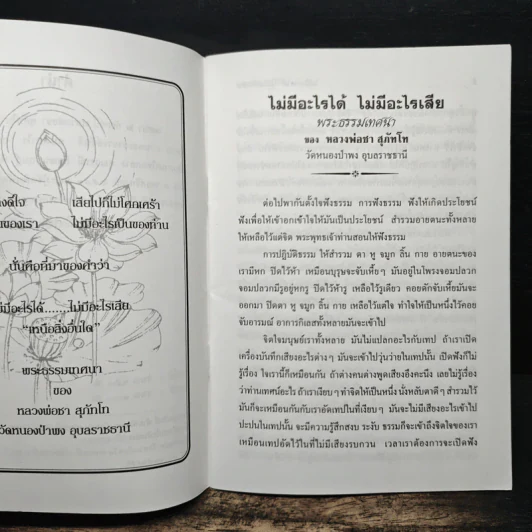 งดีใจ เสียไปก็ไม่โศกเศร้า
นของเรา ไม่มีอะไรเป็นของท่าน
นั่นคือที่มาของคำว่า
ม่มีอะไรได้.......ไม่มีอะไรเสีย
"เหนือสิ่งอื่นใด"
พระธรรมเทศนา
ของ
หลวงพ่อชา สุภัทโท
วัดหนองป่าพง อุบลราชธานี
ไม่มีอะไรได้ ไม่มีอะไรเสีย
พระธรรมเทศนา
ของ หลวงพ่อชา สุภัทโท
วัดหนองป่าพง อุบลราชธานี
ต่อไปพากันตั้งใจฟังธรรม การฟังธรรม ฟังให้เกิดประโยชน์
ฟังเพื่อให้เข้าอกเข้าใจให้มันเป็นประโยชน์ สำรวมอายตนะทั้งหลาย
ให้เหลือไว้แต่จิต พระพุทธเจ้าท่านสอนให้ฟังธรรม
การปฏิบัติธรรม ให้สำรวม ตา หู จมูก ลิ้น กาย อายตนะของ
เรามีหก ปิดไว้ห้า เหมือนบุรุษจะจับเหี้ย ๆ มันอยู่ในโพรงจอมปลวก
จอมปลวกมีรูอยู่หกรู ปิดไว้ห้ารู เหลือไว้รูเดียว คอยดักจับเหี้ยมันจะ
ออกมา ปิดตา หู จมูก ลิ้น กาย เหลือไว้แต่ใจ ทำใจให้เป็นหนึ่งไว้คอย
จับอารมณ์ อาการกิเลสทั้งหลายมันจะเข้าไป
จิตใจมนุษย์เราทั้งหลาย มันไม่แปลกอะไรกับเทป ถ้าเราเปิด
เครื่องบันทึกเสียงอะไรต่าง ๆ มันจะเข้าไปวุ่นวายในเทปนั้น เปิดฟังก็ไม่
รู้เรื่อง ใจเรานี้ก็เหมือนกัน ถ้าต่างคนต่างพูดเสียงอึงคะนึง เลยไม่รู้เรื่อง
ว่าท่านเทศน์อะไร ถ้าเราเงียบ ๆ ทำจิตให้เป็นหนึ่ง นั่งหลับตาดี ๆ สำรวมไว้
มันก็จะเหมือนกันกับเราอัดเทปในที่เงียบ ๆ มันจะไม่มีเสียงอะไรเข้าไป
ปะปนในเทปนั้น จะมีความรู้สึกสงบ ระงับ ธรรมก็จะเข้าถึงจิตใจของเรา
เหมือนเทปอัดไว้ในที่ไม่มีเสียงรบกวน เวลาเราต้องการจะเปิดฟัง